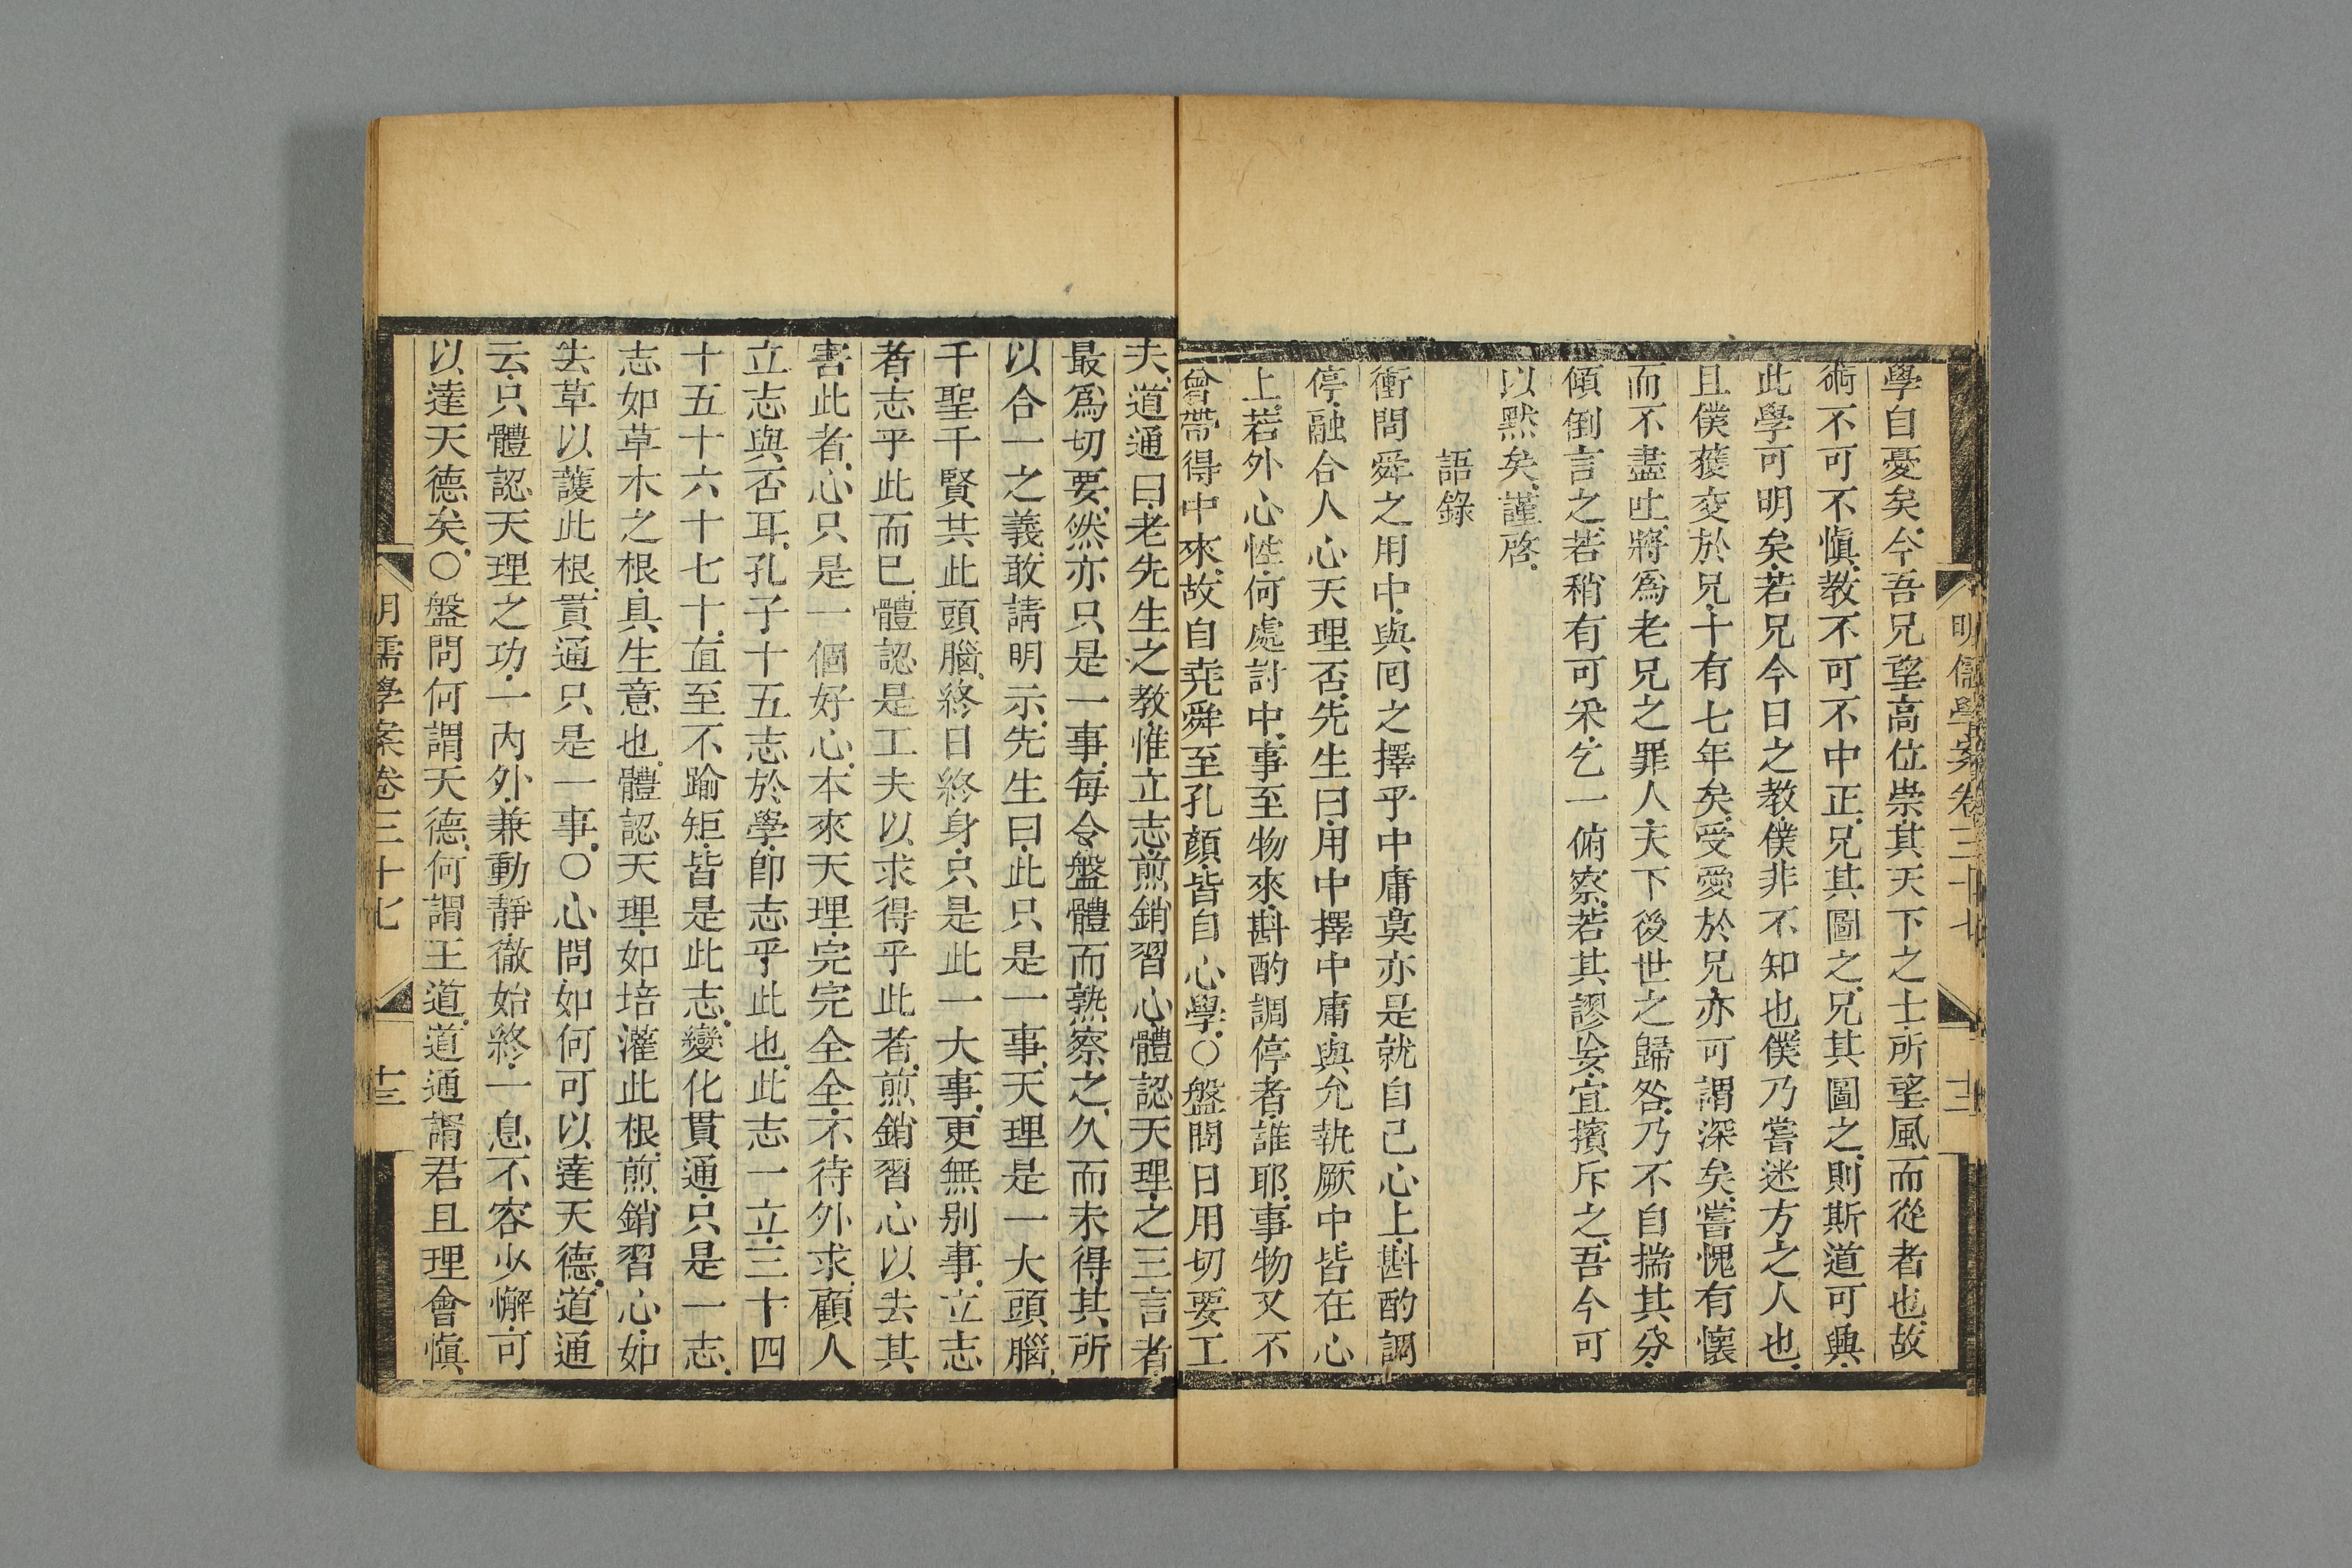 明儒學案卷三十七
十二
學自憂矣今吾兄望高位崇其天下之士所望風而從者也故
術不可不愼教不可不中正兄其圖之兄其圖之則斯道可興
此學可明矣若兄今日之教僕非不知也僕乃嘗迷方之人也
且僕獲交於兄十有七年矣受愛於兄亦可謂深矣嘗愧有懷
而不盡吐將爲老兄之罪人天下後世之歸咎乃不自揣其分
傾倒言之若稍有可采乞一俯察若其謬妄宜擯斥之吾今可
以默矣謹啓
語錄
衝問舜之用中與回之擇乎中庸莫亦是就自己心上斟酌調
停融合人心天理否先生曰用中擇中庸與允執厥中皆在心
上若外心性何處討中事至物來斟酌調停者誰耶事物又不
曾帶得中來故自堯舜至孔顏皆自心學〇盤問日用切要工
夫道通曰老先生之教惟立志煎銷習心體認天理之三言者
最爲切要然亦只是一事每令盤體而熟察之久而未得其所
以合一之義敢請明示先生曰此只是一事天理是一大頭腦
千聖千賢共此頭腦終日終身只是此一大事更無別事立志
者志乎此而已體認是工夫以求得乎此者煎銷習心以去其
害此者心只是一個好心本來天理完完全全不待外求顧人
立志與否耳孔子十五志於學卽志乎此也此志一立三十四
十五十六十七十直至不踰矩皆是此志變化貫通只是一志
志如草木之根具生意也體認天理如培灌此根煎銷習心如
去草以護此根貫通只是一事〇心問如何可以達天德道通
云只體認天理之功一內外兼動靜徹始終一息不容少懈可
以達天德矣〇盤問何謂天德何謂王道道通謂君且理會愼
明儒學案卷三十七
十三